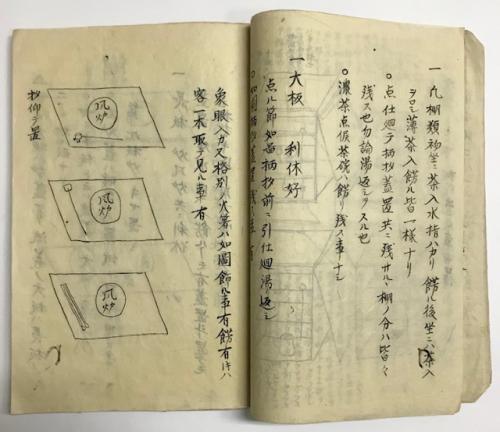 一 凡棚類初坐ニ茶入水指ハカリ餝ル後坐ニハ茶入
ヲロシ薄茶入餝ル皆一様ナリ
○点仕廻テ柄抄蓋置共ニ残サル棚ノ分ハ皆々
残ス也勿論湯返シヲスル也
○濃茶点仮茶碗ハ餝リ残ス事ナシ
一 大板 利休好
点ル節如常柄抄前ニ引仕廻湯返シ
○如圖柄抄蓋置残ス
象眼入カ又格別ノ火箸ハ如圖餝ル事有餝有トキハ
客一本取テ見ル事有
風炉
風炉
風炉
抄仰テ置